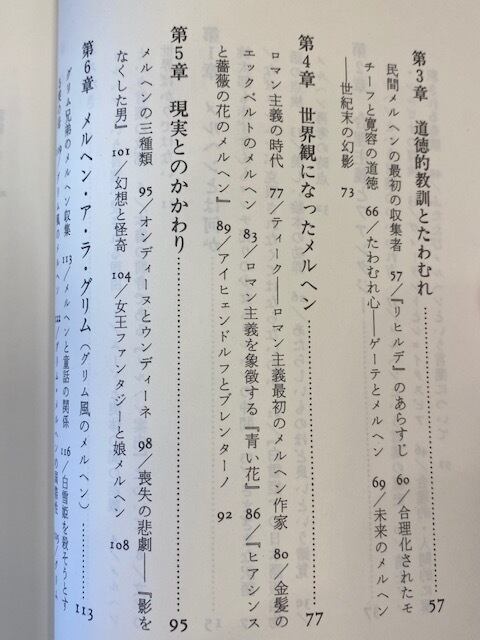 第3章　道徳的教訓とたわむれ………57
民間メルヘンの最初の収集者　57／『リヒルデ』のあらすじ　60／合理化されたモ
チーフと寛容の道徳　66／たわむれ心――ゲーテとメルヘン　69／未来のメルヘン
――世紀末の幻影　73
第4章　世界観になったメルヘン………77
ロマン主義の時代　77／ティーク――ロマン主義最初のメルヘン作家　80／金髪の
エックベルトのメルヘン　83／ロマン主義を象徴する『青い花』　86／『ヒアシンス
と薔薇の花のメルヘン』　89／アイヒェンドルフとブレンターノ　92
第5章　現実とのかかわり………95
メルヘンの三種類　95／オンディーヌとウンディーネ　98／喪失の悲劇――『影を
なくした男』　101／幻想と怪奇　104／女王ファンタジーと娘メルヘン　108
第6章　メルヘン・ア・ラ・グリム（グリム風のメルヘン）………113
グリム兄弟のメルヘン収集　113／メルヘンと童話の関係　116／白雪姫を殺そうとす